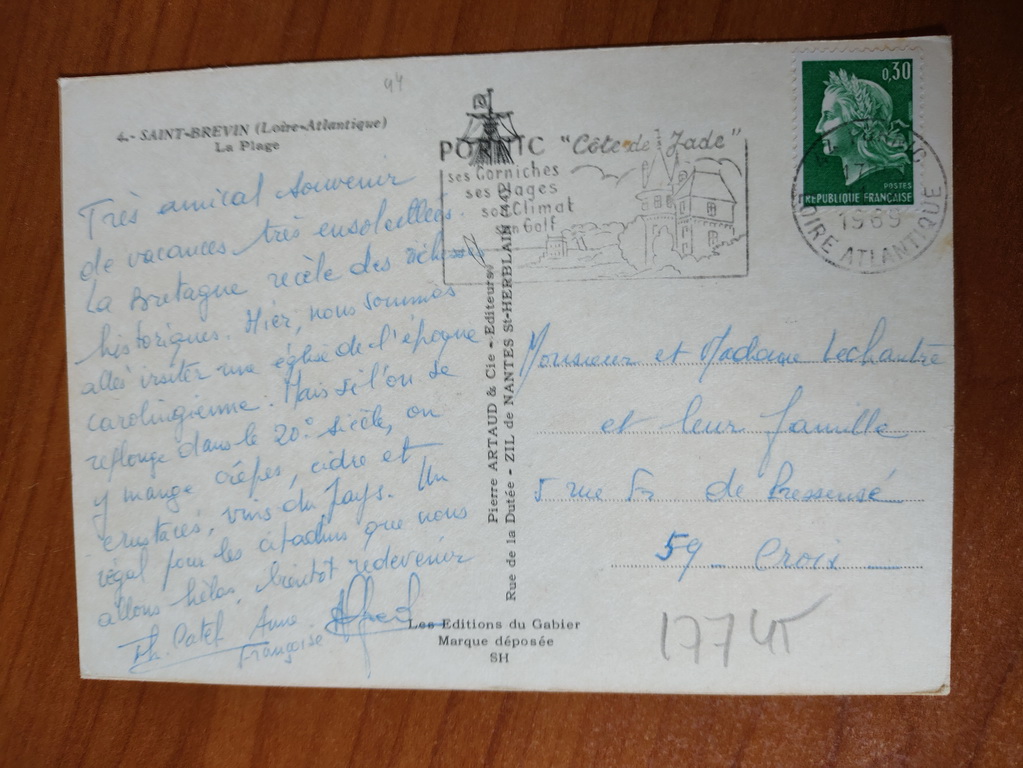 44
4.- SAINT-BREVIN (Loire-Atlantique)
La Plage
Très amical souvenir
de vacances très ensoleillées.
La Bretagne recèle des richesses
historiques. Hier, nous sommes
allés visiter une église de l'époque
carolingienne. Mais si l'on se
replonge dans le 20e siècle, on
y mange crêpes, cidre et
crustacés, vins du Pays. Un
régal pour les citadins que nous
allons hélas, bientôt redevenir
Anne
Françoise
PORNIC "Côte de Jade"
ses Corniches
ses Plages
son Climat
son Golf
0,30
POSTES
REPUBLIQUE FRANÇAISE
1969
LOIRE ATLANTIQUE
Pierre ARTAUD & Cie - Editeurs
Rue de la Dutée - ZIL de NANTES St-HERBLAIN (44)
Monsieur et Madame Lechantre
et leur famille
5 rue Fr de Pressensé
59 Croix
Les Editions du Gabier
Marque déposée
SH